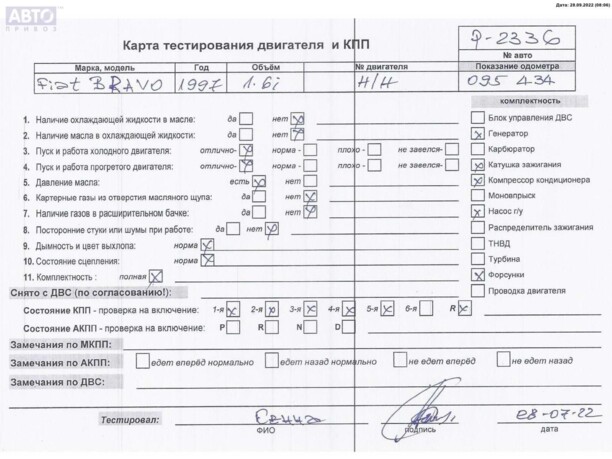 Дата: 28.09.2022 (08:08)
АВТО
ПРИВОЗ
Карта тестирования двигателя и КПП
9-2336
№ авто
Марка, модель
Год
Объём
№ двигателя
Показание одометра
Fiat BRAVO 1997 1.6i Н/Н 095 434
комплектность
1. Наличие охлаждающей жидкости в масле: да нет
2. Наличие масла в охлаждающей жидкости: да нет
3. Пуск и работа холодного двигателя: отлично- норма - плохо - не завелся-
4. Пуск и работа прогретого двигателя: отлично- норма - плохо - не завелся-
5. Давление масла: есть нет
6. Картерные газы из отверстия масляного щупа: да нет
7. Наличие газов в расширительном бачке: да нет
8. Посторонние стуки или шумы при работе: да нет
9. Дымность и цвет выхлопа: норма
10. Состояние сцепления: норма
11. Комплектность : полная
Блок управления ДВС
Генератор
Карбюратор
Катушка зажигания
Компрессор кондиционера
Моновпрыск
Насос г/у
Распределитель зажигания
ТНВД
Турбина
Форсунки
Проводка двигателя
Снято с ДВС (по согласованию!):
Состояние КПП - проверка на включение: 1-я 2-я 3-я 4-я 5-я 6-я R
Состояние АКПП - проверка на включение: P R N D
Замечания по МКПП:
Замечания по АКПП: едет вперёд нормально едет назад нормально не едет вперёд не едет назад
Замечания по ДВС:
Тестировал: 28-07-22
ФИО подпись дата